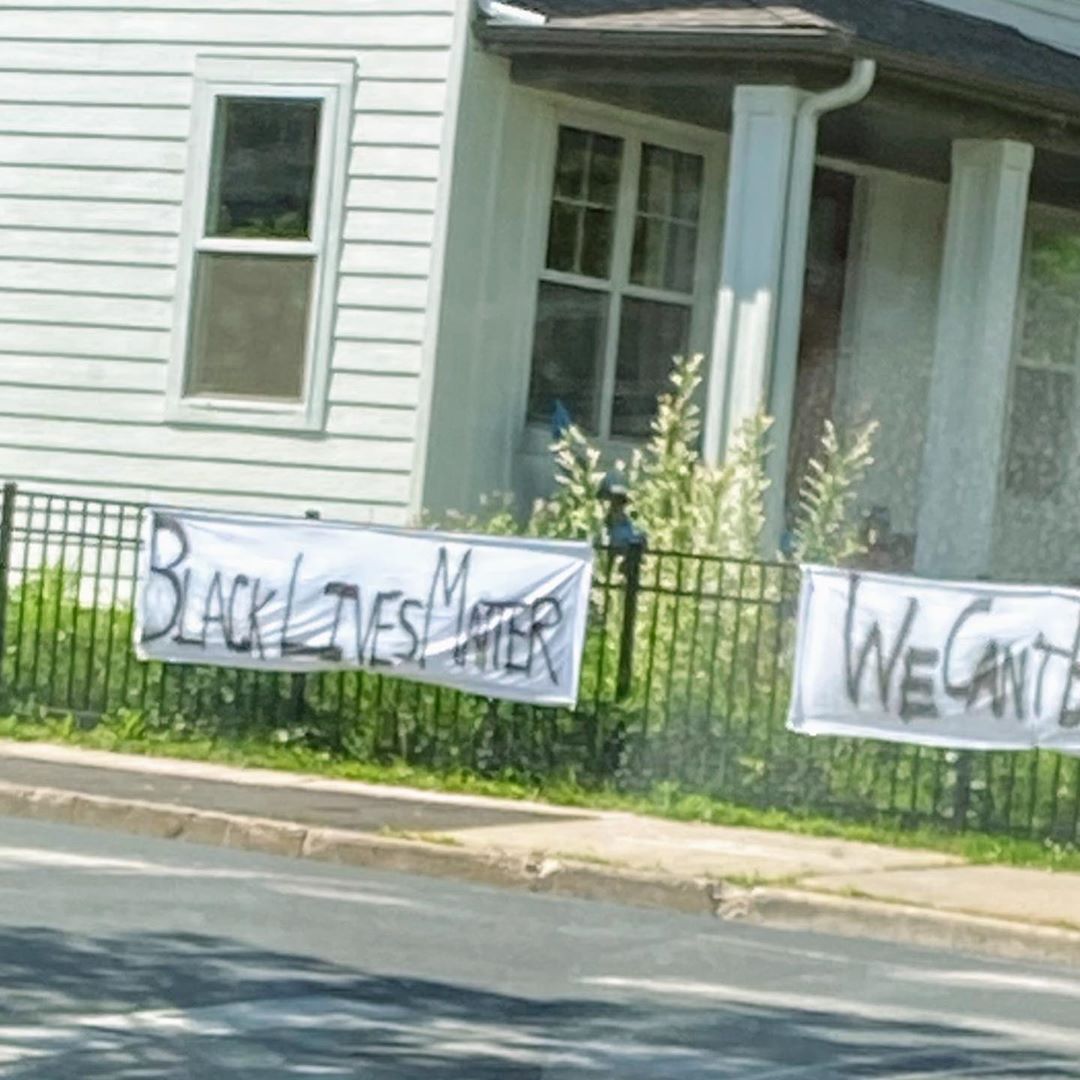 Black Lives Matter
We Can't